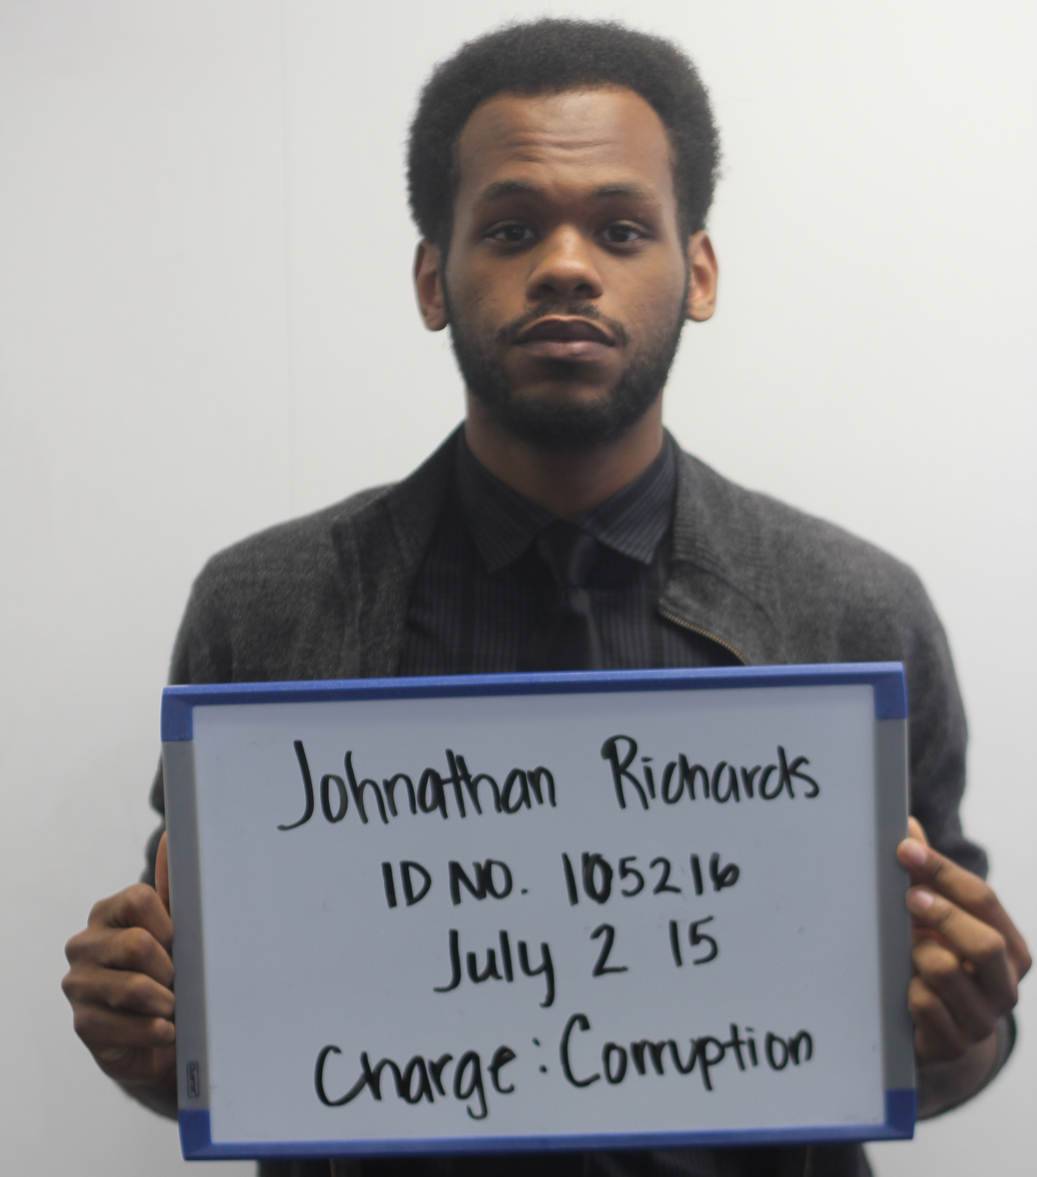 Johnathan Richards
ID NO. 105216
July 2 15
Charge: Corruption